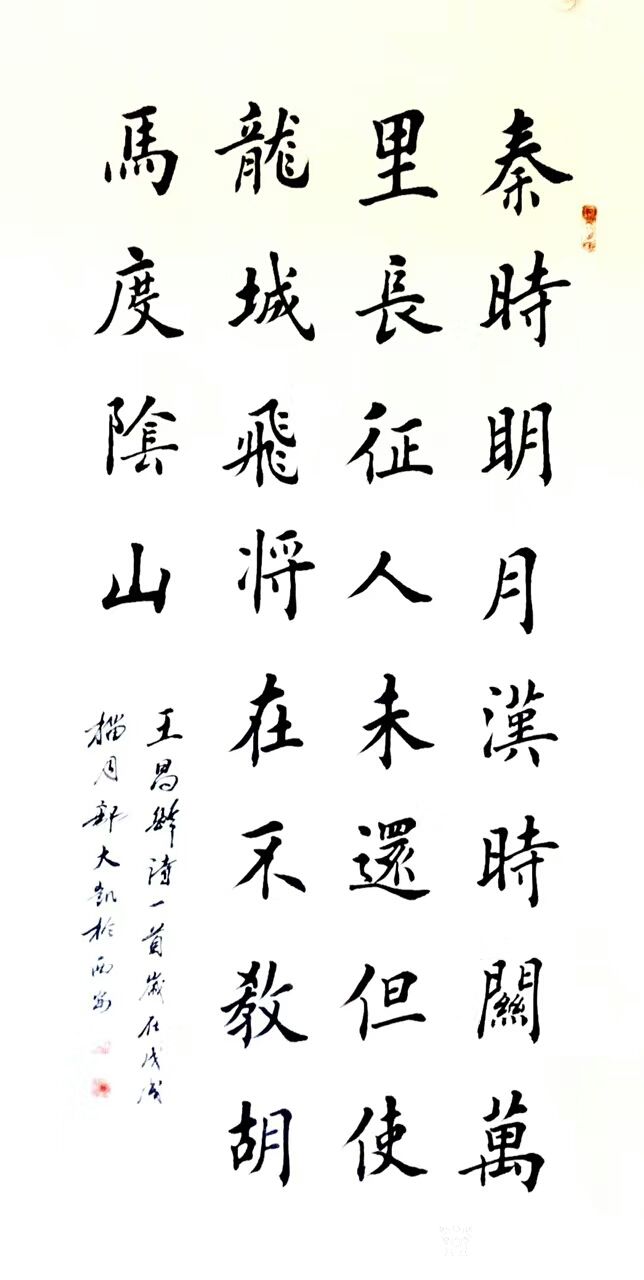 秦時明月漢時關萬
里長征人未還但使
龍城飛将在不教胡
馬度陰山
王昌齡詩一首歲在戊戌
月鄭大凱於西安